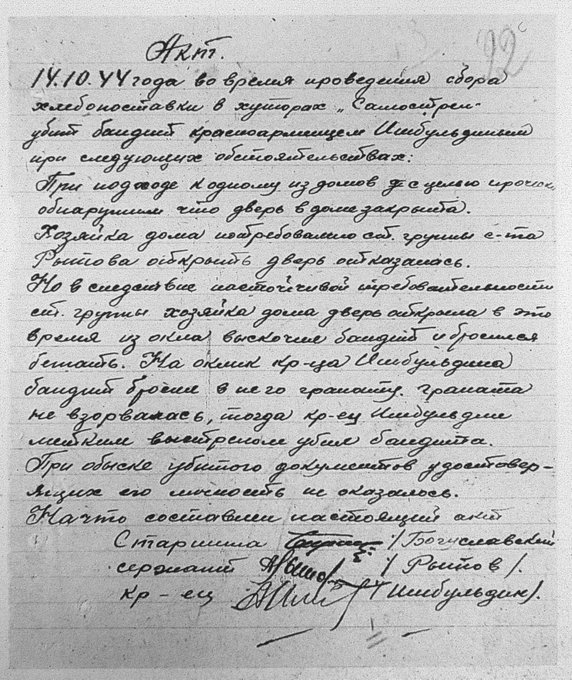 22
Акт.
14.10.44 года во время проведения сбора
хлебопоставки в хуторах „Самострел-
убит бандит красноармейцем Ишбульдиным
при следующих обстоятельствах:
При подходе к одному из домов с целью прочески
обнаружили что дверь в доме закрыта.
Хозяйка дома потребованию ст. группы с-та
Рытова открыть дверь отказалась.
Но в следствие настойчивой требовательности
ст. группы хозяйка дома дверь открыла в это
время из окна выскочил бандит и бросился
бежать. На оклик кр-ца Ишбульдина
бандит бросил в него гранату. Граната
не взорвалась, тогда кр-ец Ишбульдин
метким выстрелом убил бандита.
При обыске убитого документов удостовер-
ящих его личность не оказалось.
На что составлен настоящий акт
Старшина /Богуславский
сержант /Рытов/.
кр-ец /Ишбульдин/.